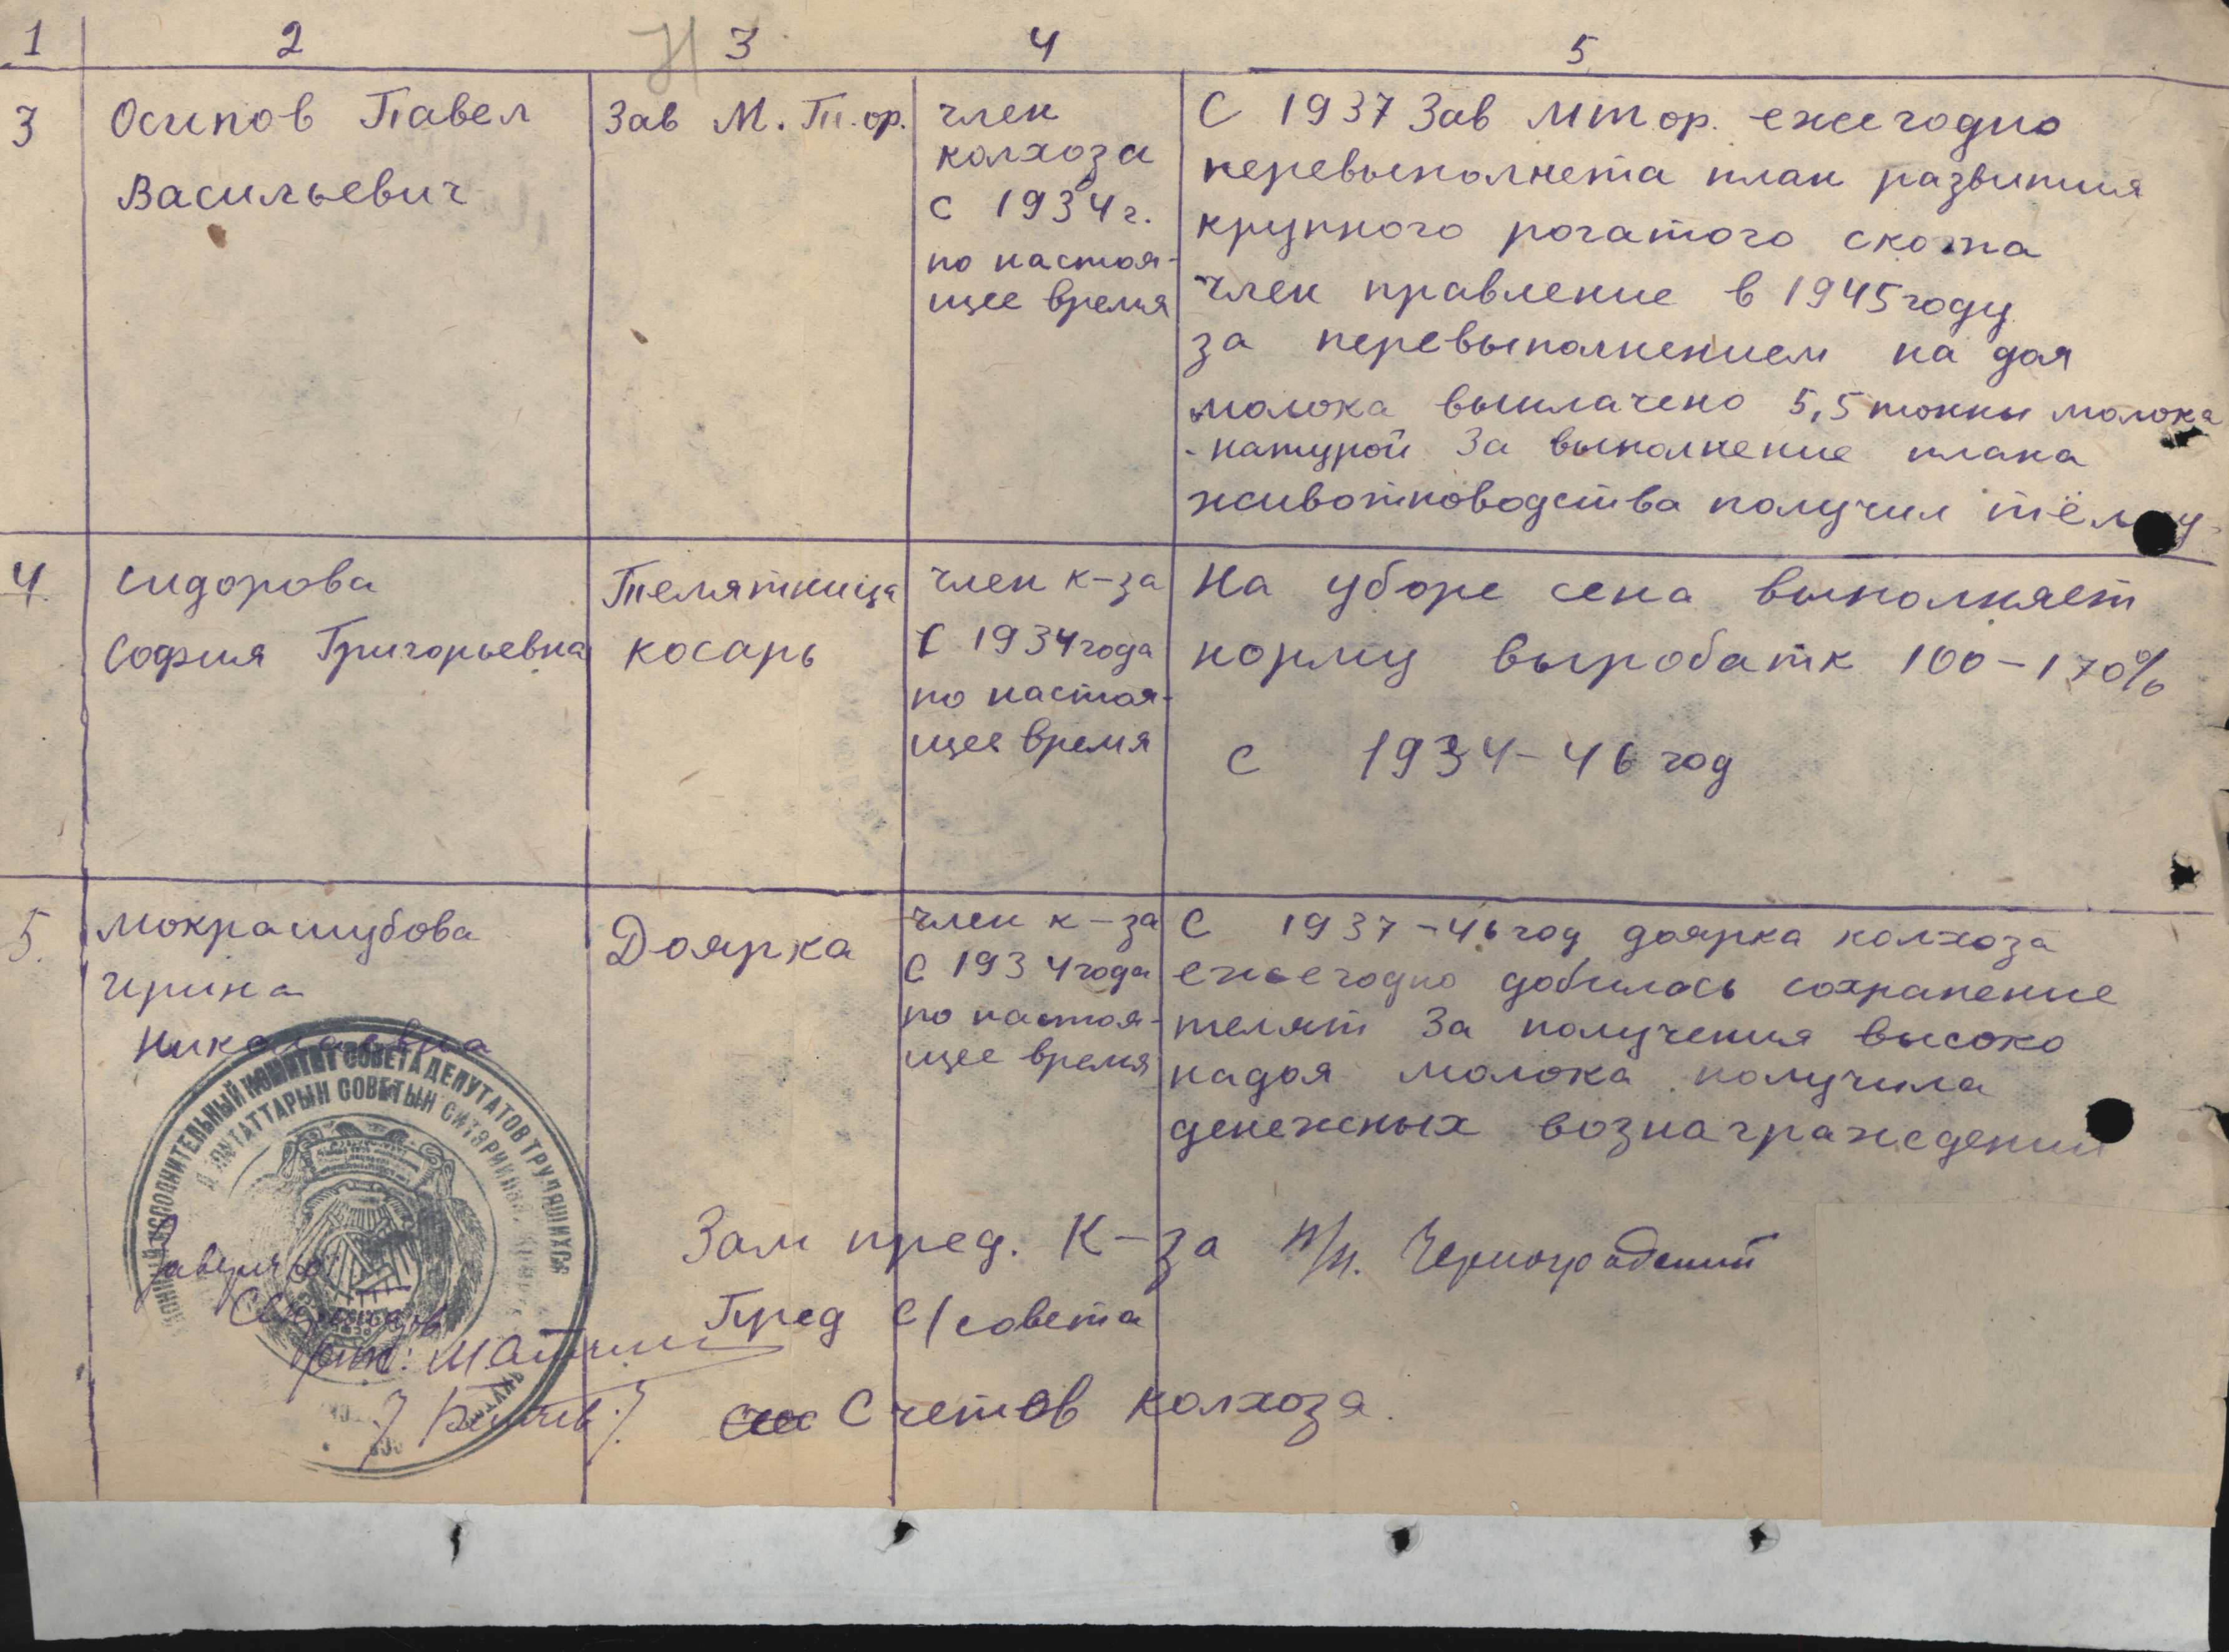 1 2 3 4 5
3
Осипов Павел
Васильевич
Зав М. Т. ор.
член
колхоза
с 1934 г.
по настоя-
щее время
С 1937 Зав мтор. ежегодно
перевыполнета план развития
крупного рогатого скота
член правление в 1945 году
за перевыполнением на доя
молока выплачено 5,5 тонны молока
натурой За выполнение плана
животноводства получил тёлку
4
Сидорова
София Григорьевна
Телятница
косарь
член к-за
С 1934 года
по настоя-
щее время
На уборе сена выполняет
норму выробатк 100-170%
с 1934-46 год
5.
Мокрашубова
Ирина
Николаевна
Доярка
член к-за
С 1934 года
по настоя-
щее время
С 1937-46 год доярка колхоза
ежегодно добилась сохранение
телят За получения высоко
надоя молока получила
денежных вознаграждений
ИСПОЛНИТЕЛЬНЫЙ КОМИТЕТ СОВЕТА ДЕПУТАТОВ ТРУДЯЩИХСЯ
ДЕПУТАТТАРЫН СОВЕТЫН
Зам пред. К-за п/п. Черноградский
Пред С/совета
Счетов колхоза.
Заверяю: